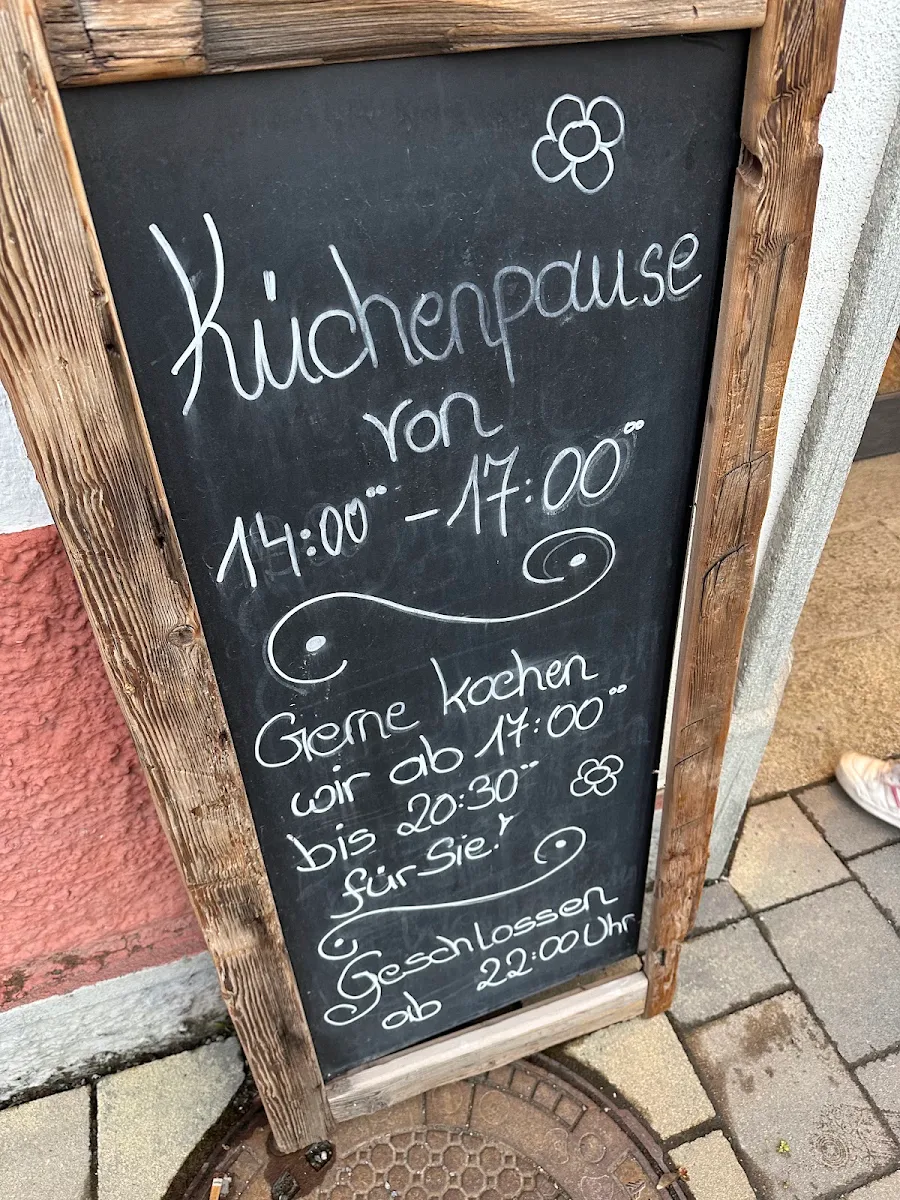 Küchenpause
von
14:00°° - 17:00°°
Gerne kochen
wir ab 17:00°°
bis 20:30°°
für Sie!
Geschlossen
ab 22:00 Uhr